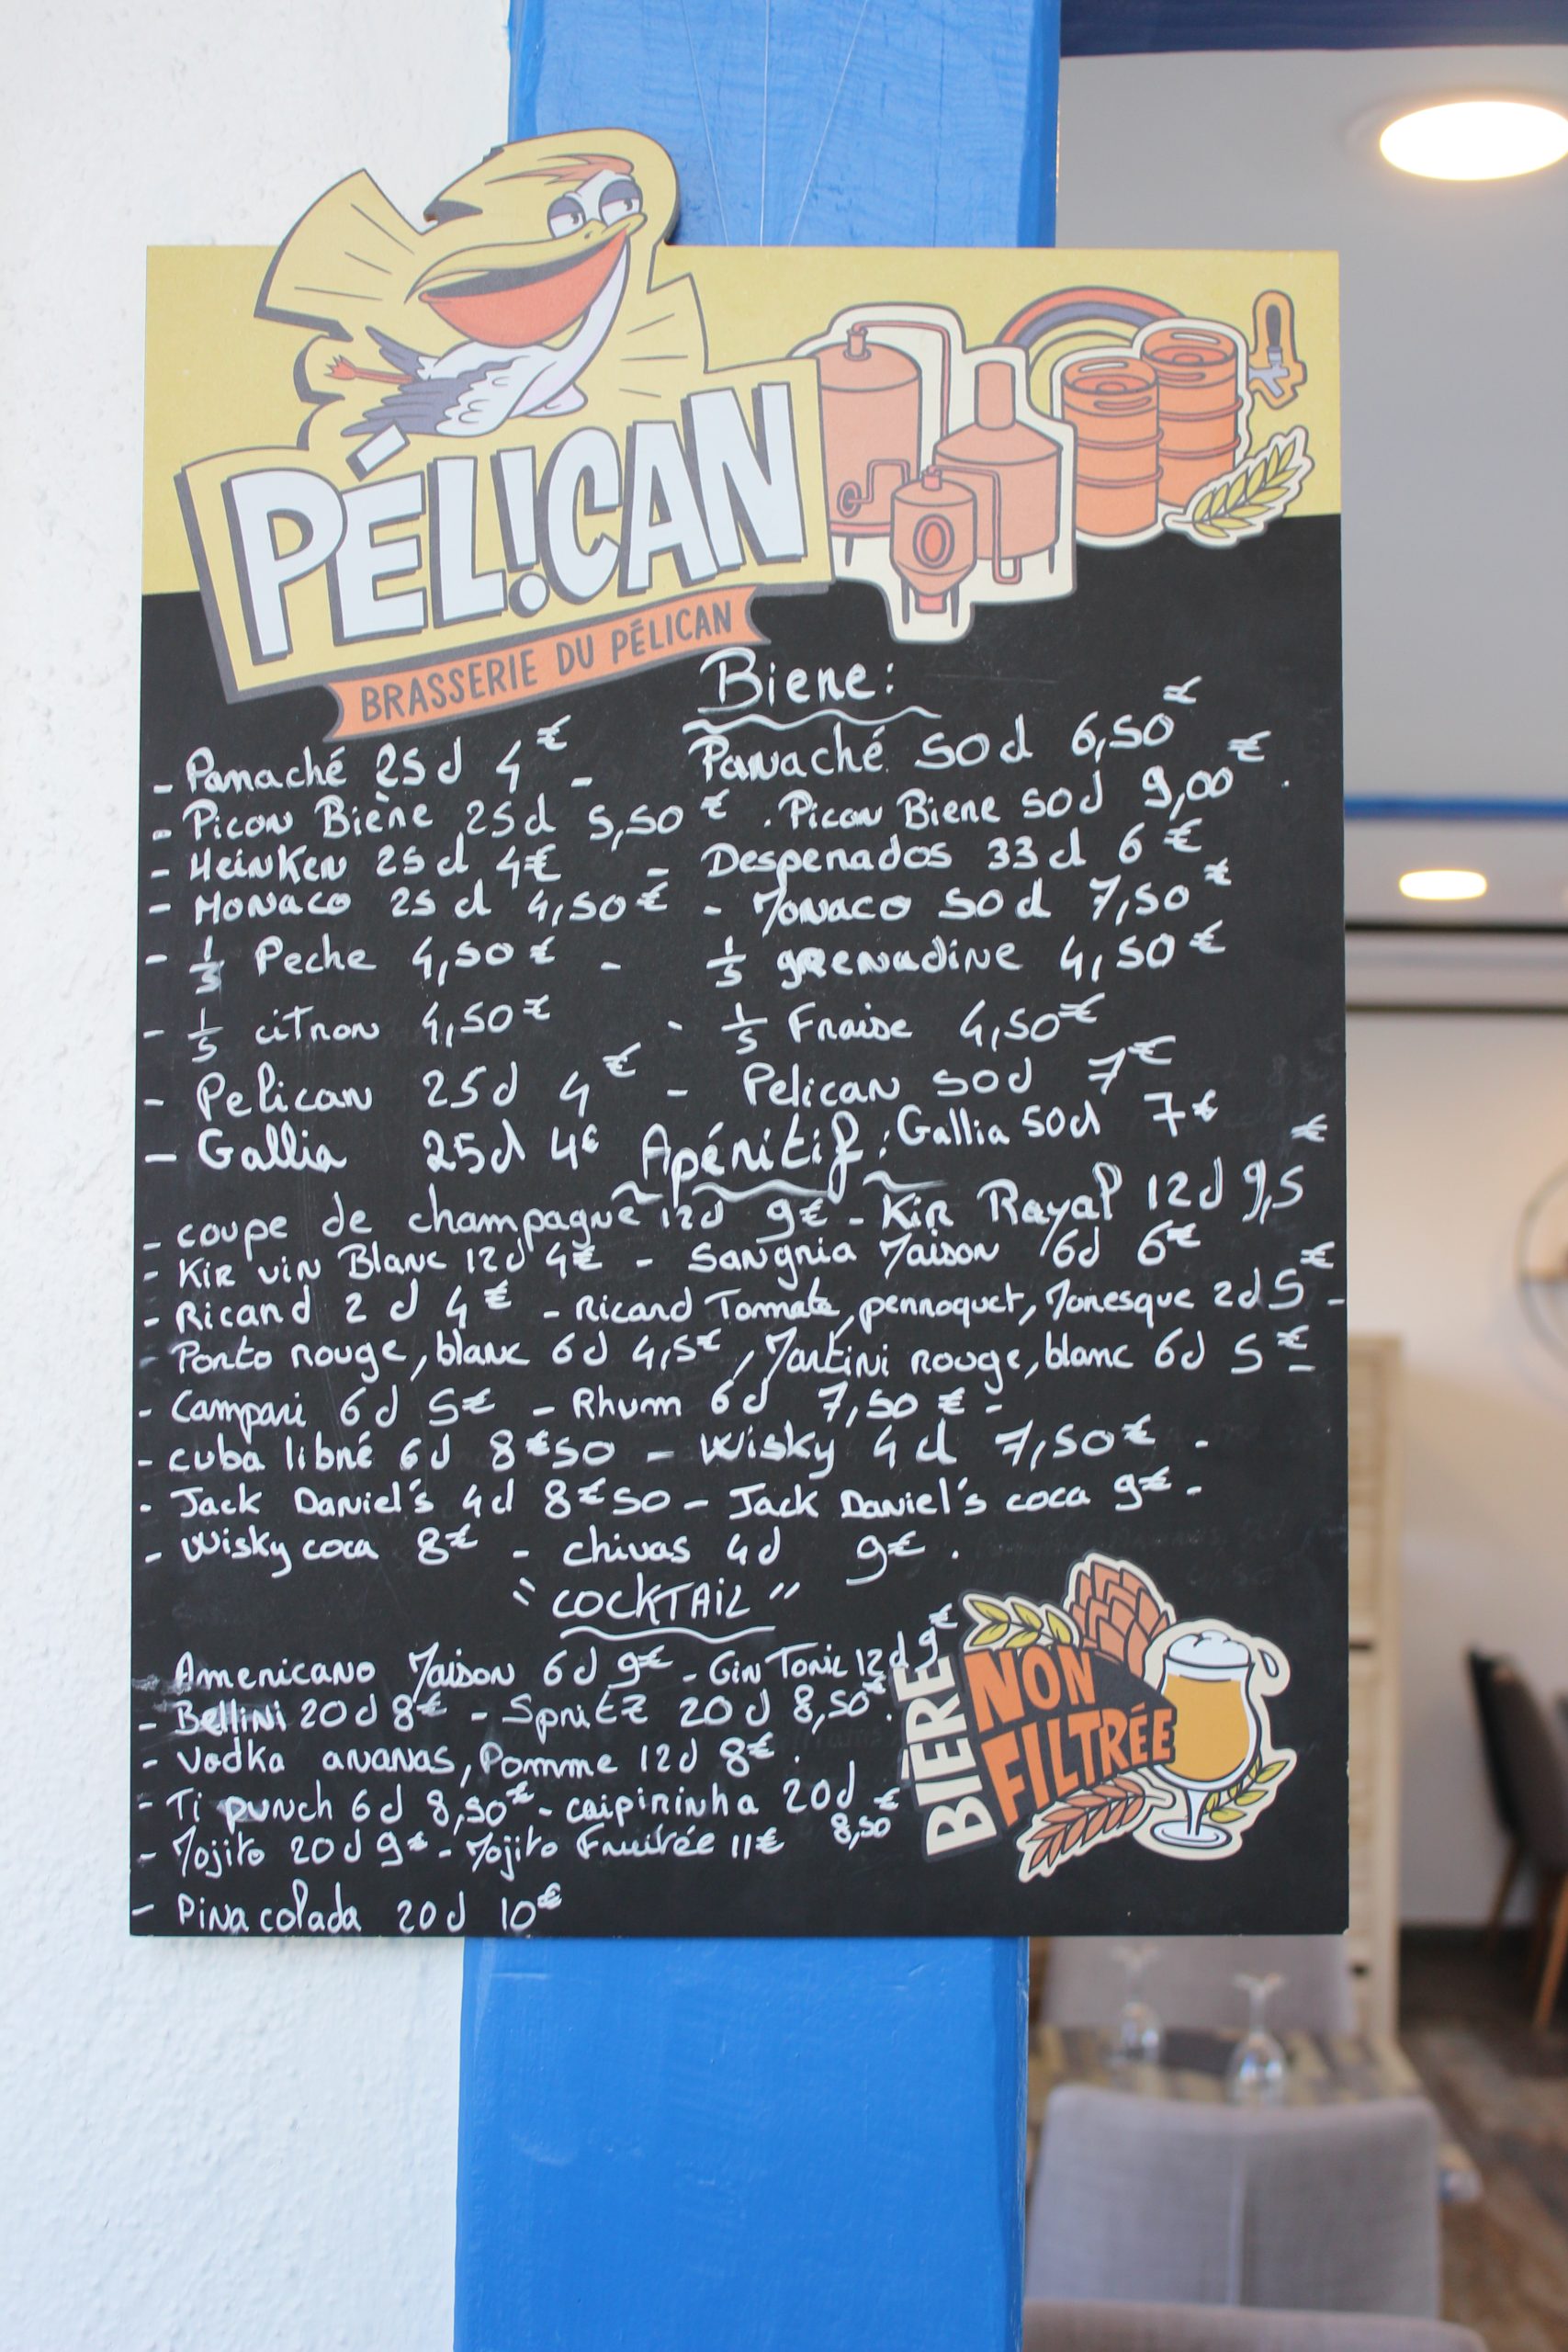 PÉL!CAN
BRASSERIE DU PÉLICAN
Biere:
- Panaché 25d 4€ - Panaché 50d 6,50€
- Picon Bière 25d 5,50€ . Picon Biere 50d 9,00€ .
- Heinken 25d 4€ - Desperados 33d 6€
- Monaco 25d 4,50€ - Monaco 50d 7,50€
- 1/5 Peche 4,50€ - 1/5 grenadine 4,50€
- 1/5 citron 4,50€ - 1/5 Fraise 4,50€
- Pelican 25d 4€ - Pelican 50d 7€
- Gallia 25d 4€ Gallia 50d 7€
Apéritif:
- coupe de champagne 12d 9€ - Kir Royal 12d 9,5€
- Kir vin Blanc 12d 4€ - Sangria Maison 16d 6€
- Ricard 2d 4€ - Ricard Tomate, perroquet, Moresque 2d 5€ -
- Porto rouge, blanc 6d 4,5€, Martini rouge, blanc 6d 5€ -
- Campari 6d 5€ - Rhum 6d 7,50€ -
- cuba libré 6d 8€50 - Wisky 4d 7,50€ -
- Jack Daniel's 4d 8€50 - Jack Daniel's coca 9€ -
- Wisky coca 8€ - chivas 4d 9€ .
"COCKTAIL"
Americano Maison 6d 9€ - Gin Tonic 12d 9€
- Bellini 20d 8€ - Spritz 20d 8,50€.
- Vodka ananas, Pomme 12d 8€ .
- Ti punch 6d 8,50€ - caipirinha 20d 8,50€
- Mojito 20d 9€ - Mojito Fruitée 11€
- Pina colada 20d 10€
BIÈRE
NON
FILTRÉE